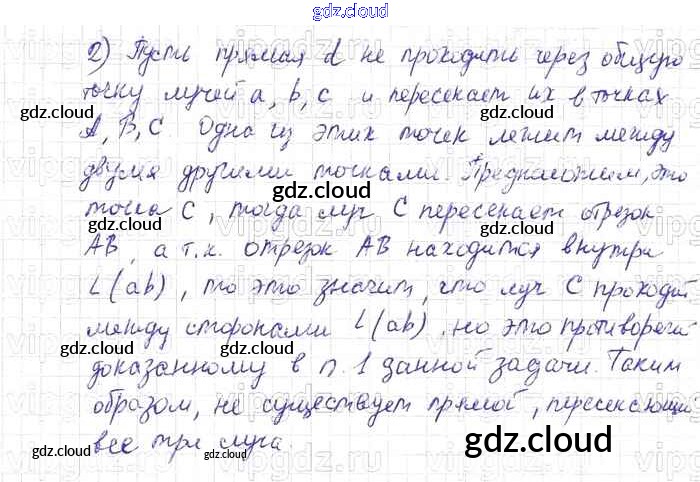 gdz.cloud
2) Пусть прямая d не проходить через общую
точку лучей a, b, c и пересекает их в точках
A, B, C. Одна из этих точек лежит между
двумя другими точками. Предположим, это
точка C, тогда луч C пересекает отрезок
AB, а т.к. отрезок AB находится внутри
L(ab), то это значит, что луч C проходит
между сторонами L(ab), но это противоречит
доказанному в п. 1 данной задачи. Таким
образом, не существует прямой, пересекающей
все три луча.
gdz.cloud
gdz.cloud
gdz.cloud
gdz.cloud
gdz.cloud
gdz.cloud
gdz.cloud
gdz.cloud
gdz.cloud